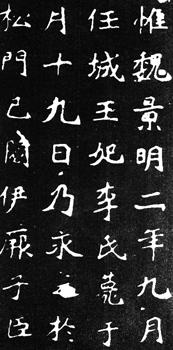 惟魏景明二年九月
任城王妃李氏薨于
月十九日乃永於
松門已伊厥子臣